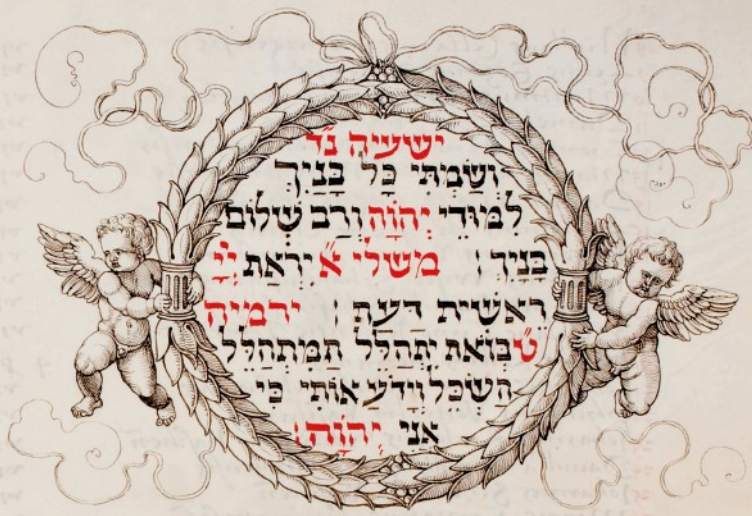 ישעיה נ״ד
ושַׂמְתִּי כָּל בָּנַיִךְ
לִמּוּדֵי יְהֹוָה וְרַב שְׁלוֹם
בָּנָיִךְ׃ משלי א׳ יִרְאַת יְיָ
רֵאשִׁית דָּעַת׃ ירמיה
ט׳ בְּזֹאת יִתְהַלֵּל הַמִתְהַלֵּל
הַשְׂכֵּל וְיָדֹעַ אוֹתִי כִּי
אֲנִי יְהֹוָה׃